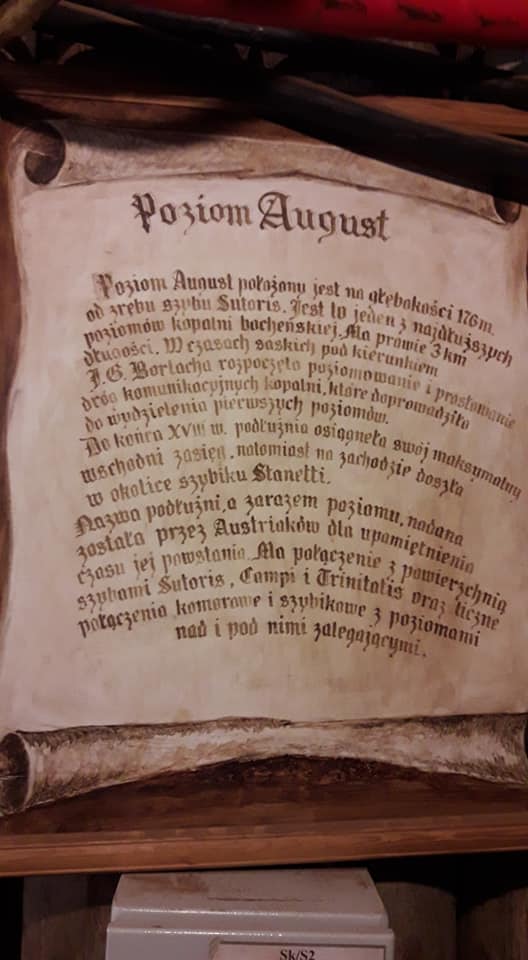 Poziom August
Poziom August położony jest na głębokości 176m.
od zrębu szybu Sutoris. Jest to jeden z najdłuższych
poziomów kopalni bocheńskiej. Ma prawie 3 km
długości. W czasach saskich pod kierunkiem
J.G. Borlacha rozpoczęto poziomowanie i prostowanie
dróg komunikacyjnych kopalni, które doprowadziło
do wydzielenia pierwszych poziomów.
Do końca XVIII w. podłużnia osiągnęła swój maksymalny
wschodni zasięg, natomiast na zachodzie doszła
w okolice szybiku Stanetti.
Nazwa podłużni, a zarazem poziomu, nadana
została przez Austriaków dla upamiętnienia
czasu jej powstania. Ma połączenie z powierzchnią
szybami Sutoris, Campi i Trinitatis oraz liczne
połączenia komorowe i szybikowe z poziomami
nad i pod nimi zalegającymi.
Sk/S2